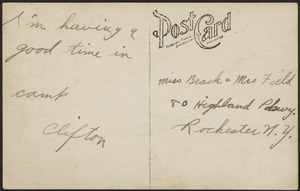 I'm having a
good time in
camp
Clifton
Post Card
Miss Beach & Mrs Field
80 Highland Pkwy.
Rochester N.Y.